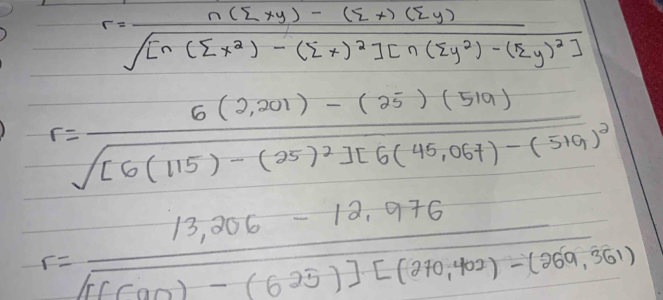 r = n(Σxy) - (Σx)(Σy)
√[n(Σx²) - (Σx)²][n(Σy²) - (Σy)²]
6(2,201) - (25)(519)
r =
√[6(115) - (25)²][6(45,067) - (519)²
13,206 - 12,976
r =
√[(690) - (625)][(270,402) - (269,361)